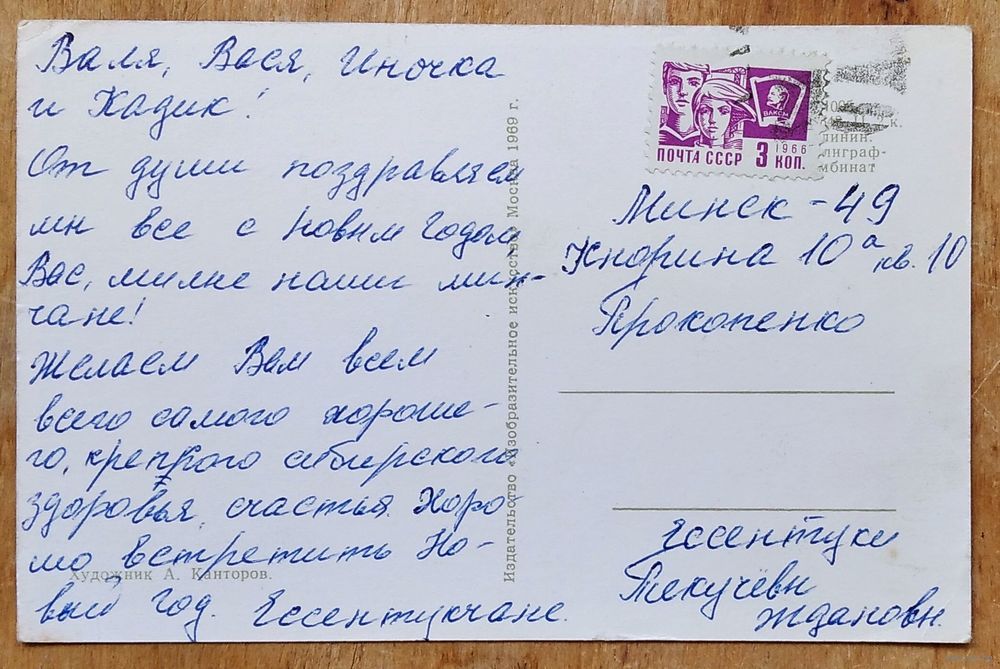 Валя, Вася, Иночка
и Хадик!
От души поздравляем
мы все с Новым Годом
Вас, милые наши мин-
чане!
Желаем Вам всем
всего самого хороше-
го, крепкого сибирского
здоровья, счастья. Хоро-
шо встретить Но-
вый год. Ессентукчане.
Художник А. Канторов.
Издательство «Изобразительное искусство» Москва 1969 г.
ВЛКСМ
1966
ПОЧТА СССР 3 КОП.
линин.
лиграф-
мбинат
Минск - 49
Кнорина 10а кв. 10
Прокопенко
Ессентуки
Текучёвы
Ждановы.